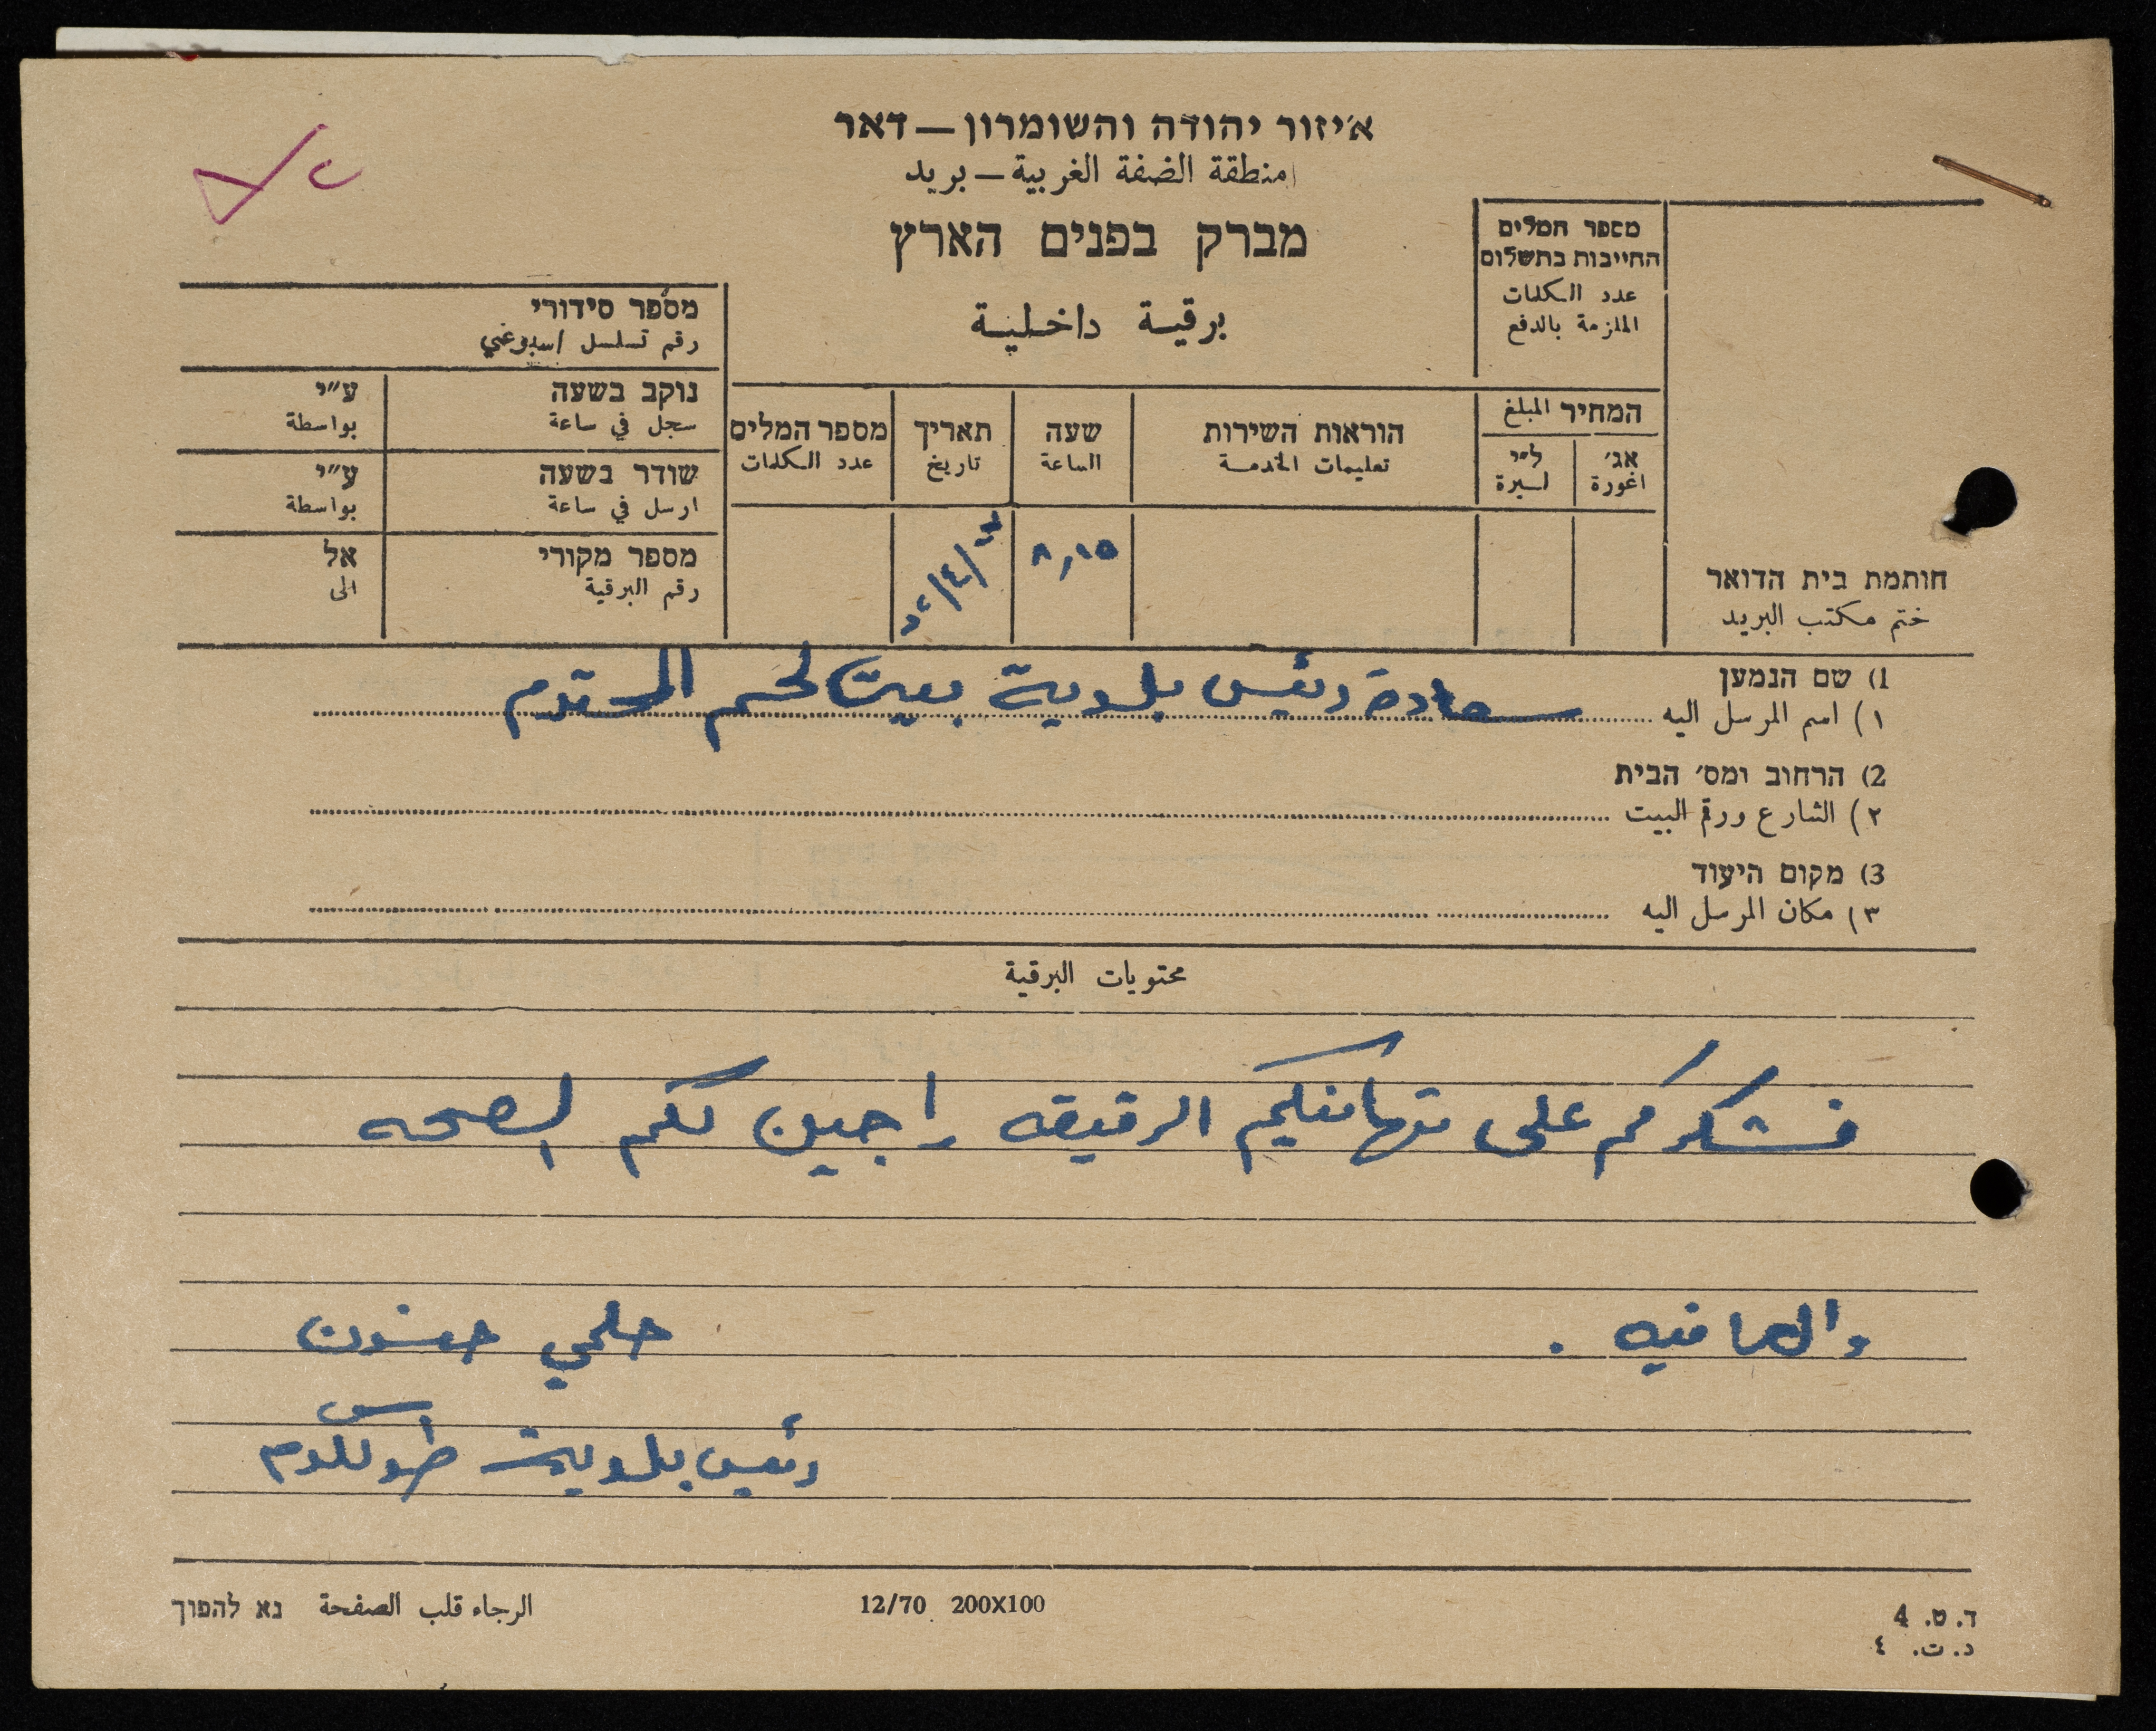 איזור יהודה והשומרון — דאר
منطقة الضفة الغربية — بريد
מברק בפנים הארץ
برقية داخلية
מספר המלים
החייבות בתשלום
عدد الكلمات
الملزمة بالدفع
מספר סידורי
رقم تسلسل
נוקב בשעה ע"י
سجل في ساعة بواسطة
שודר בשעה ע"י
ارسل في ساعة بواسطة
מספר מקורי אל
رقم البرقية الى
המחיר المبلغ
אג' ל"י
اغورة ليرة
הוראות השירות
تعليمات الخدمة
שעה
الساعة
תאריך
تاريخ
מספר המלים
عدد الكلمات
٨,١٥
חותמת בית הדואר
ختم مكتب البريد
1) שם הנמען
١) اسم المرسل اليه سعادة رئيس بلدية بيت لحم المحترم
2) הרחוב ומס' הבית
٢) الشارع ورقم البيت
3) מקום היעוד
٣) مكان المرسل اليه
محتويات البرقية
نشكركم على تهانيكم الرقيقه راجين لكم الصحه
والعافيه .
حلمي حنون
رئيس بلدية طولكرم
ד. ט. 4
د. ت. ٤
12/70 200X100
الرجاء قلب الصفحة נא להפוך